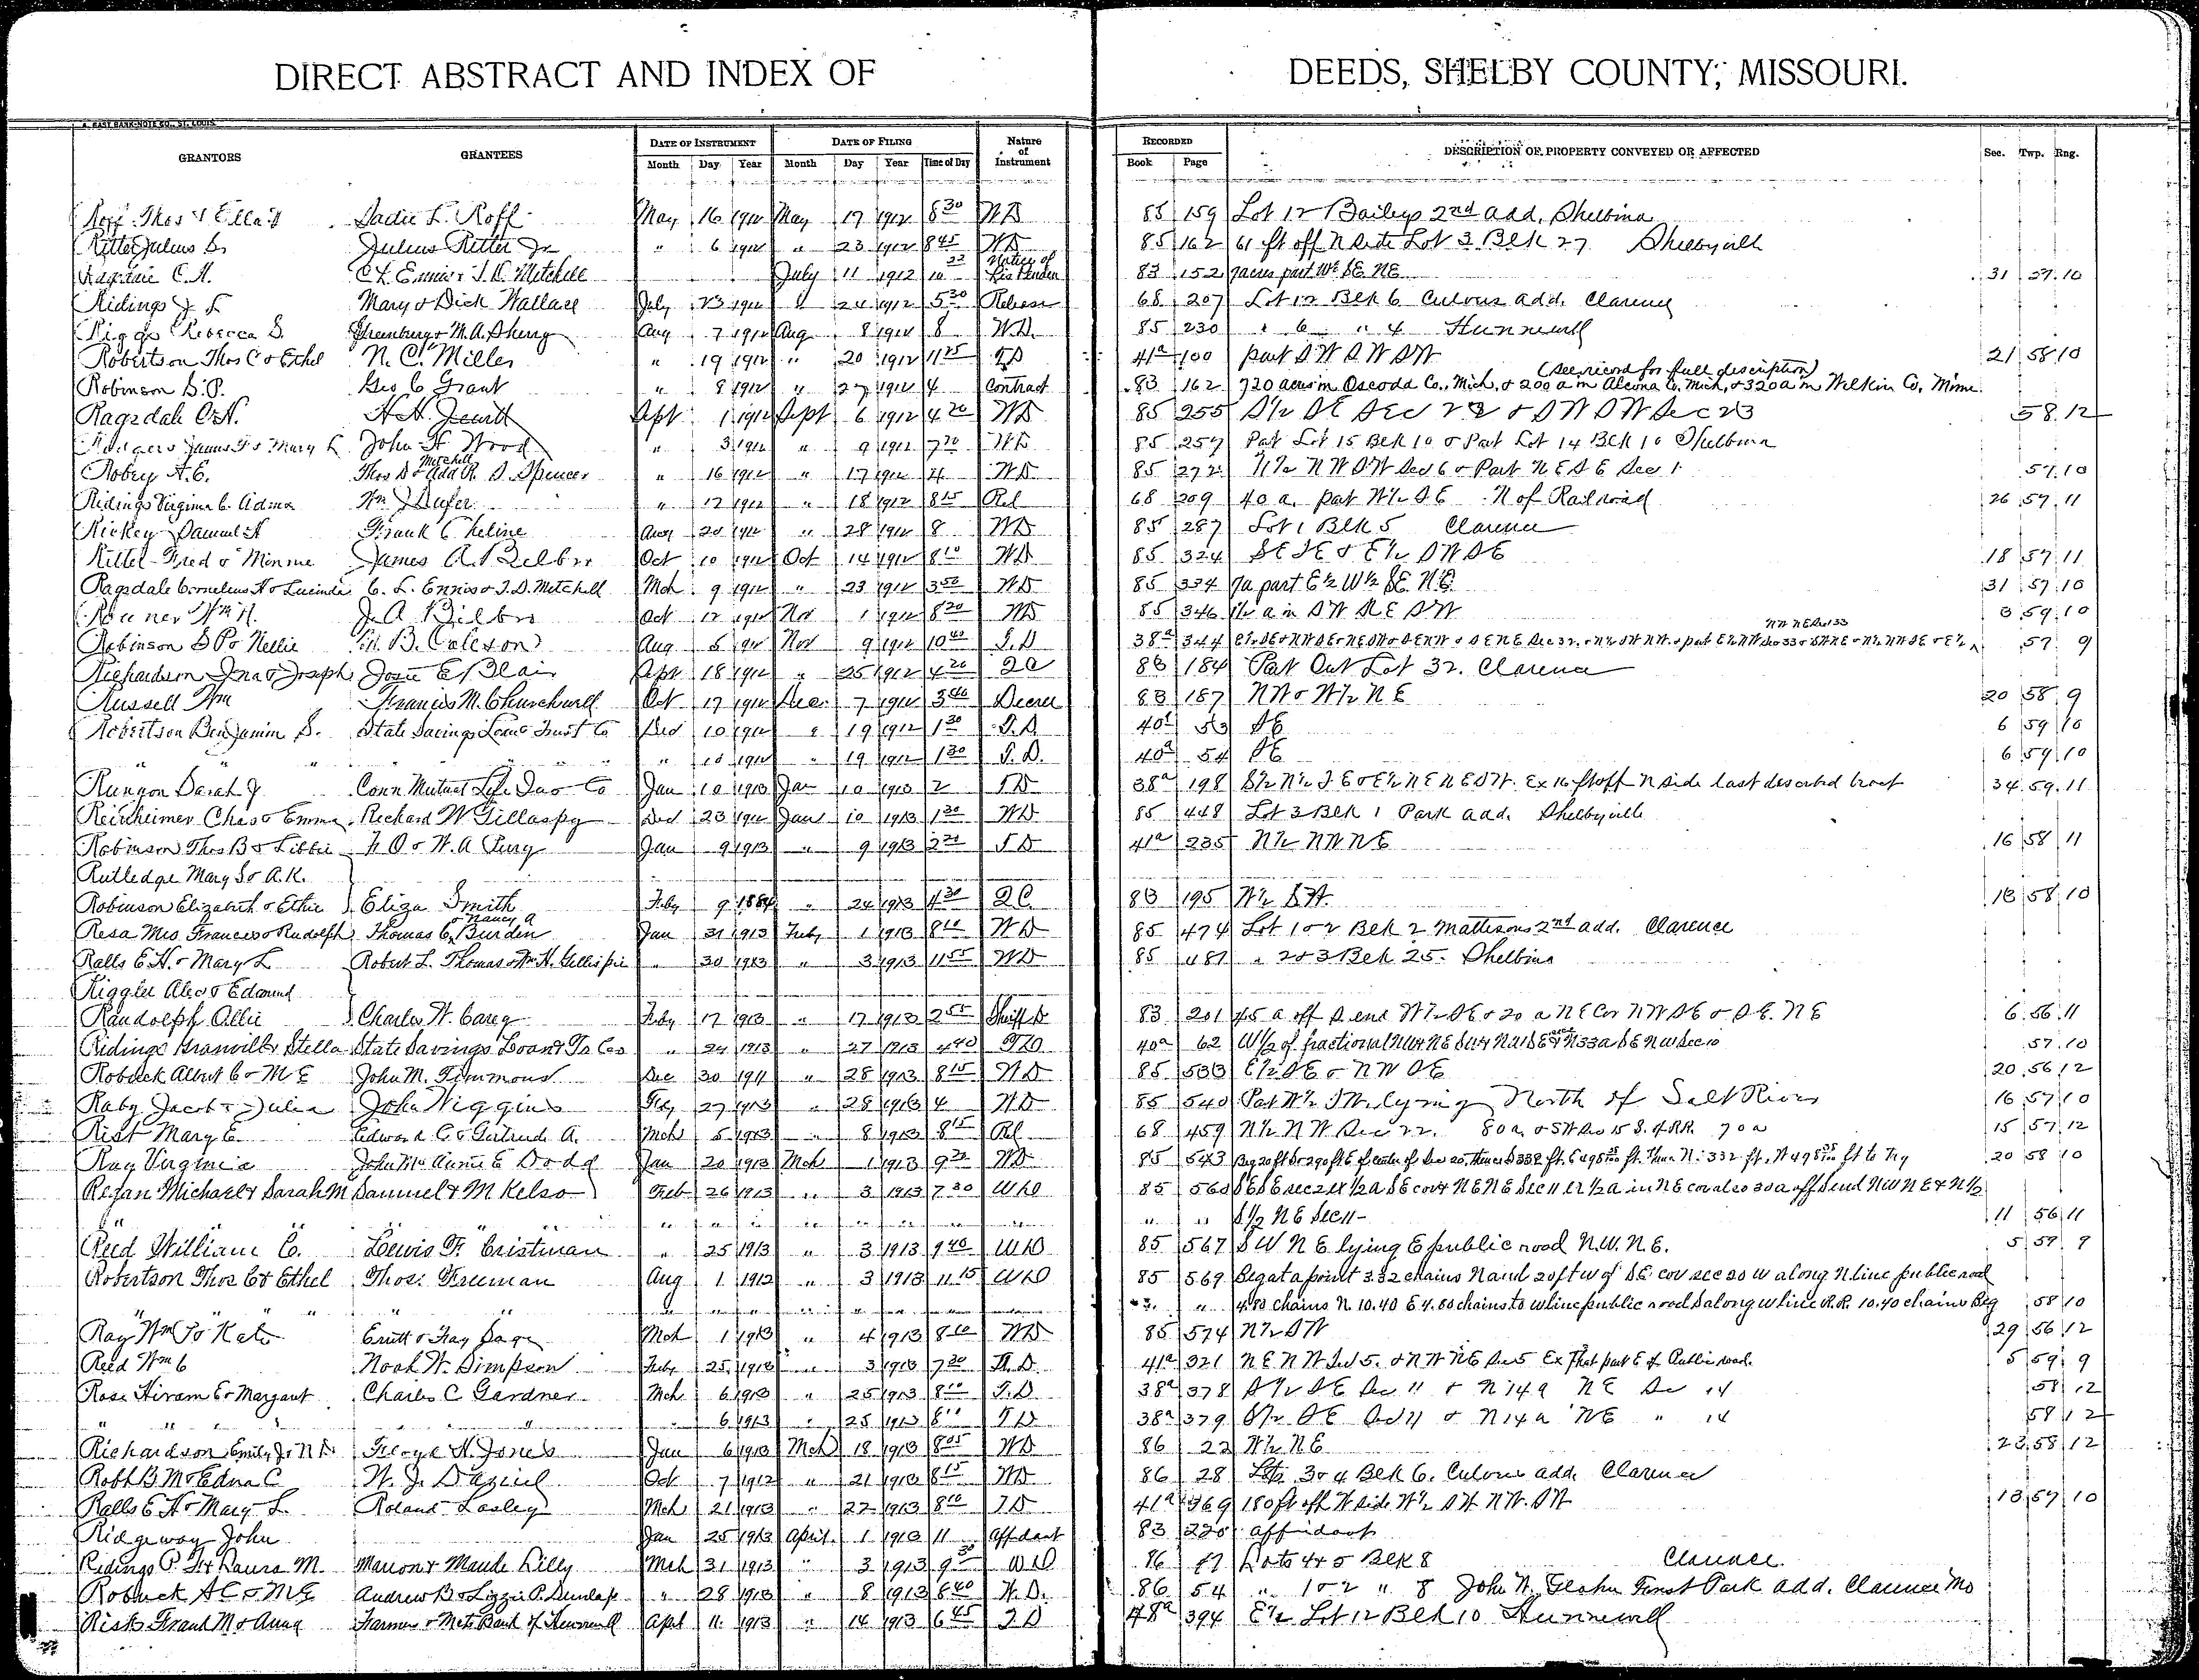 DIRECT ABSTRACT AND INDEX OF DEEDS, SHELBY COUNTY, MISSOURI.
GRANTORS GRANTEES DATE OF INSTRUMENT DATE OF FILING Nature of Instrument RECORDED DESCRIPTION OF PROPERTY CONVEYED OR AFFECTED Sec. Twp. Rng.
Month Day Year Month Day Year Time of Day Book Page
Roff Thos & Ella Sadie L. Roff May 16 1912 May 17 1912 8 30 WD 85 159 Lot 12 Baileys 2nd add. Shelbina
Ritter Julius Sr Julius Ritter Jr " 6 1912 " 23 1912 8 45 WD 85 162 61 ft off N side Lot 3 Blk 27 Shelbyville
Ragsdale C.H. C.L. Ennis & J.D. Mitchell July 11 1912 10 Notice of Lis Penden 83 152 7 acres part W½ SE NE 31 57 10
Ridings J L Mary & Dick Wallace July 23 1912 " 24 1912 5 30 Release 68 207 Lot 12 Blk 6 Culvers add. Clarence
Riggs Rebecca S. Greenbury & M.A. Sherry Aug 7 1912 Aug 8 1912 8 WD. 85 230 " 6 " 4 Hunnewell
Robertson Thos C & Ethel N. C. Miller " 19 1912 " 20 1912 11 25 TD 41a 100 part SW SW SW 21 58 10
Robinson S.P. Geo C Grant " 8 1912 " 27 1912 4 Contract 83 162 720 acres in Oscoda Co., Mich, & 200 a in Alcona Co. Mich, & 320 a in Wilkin Co, Minn. (See record for full description)
Ragsdale C.H. H.H. Jewett Sept 1 1912 Sept 6 1912 4 20 WD 85 255 S½ SE Sec 22 & SW SW Sec 23 58 12
Rodgers James F & Mary L John H. Wood " 3 1912 " 9 1912 7 20 WD 85 257 Part Lot 15 Blk 10 & Part Lot 14 Blk 10 Shelbina
Robey A.E. Thos D & Add R. Mitchell S. Spencer " 16 1912 " 17 1912 4 WD 85 272 N½ NW SW Sec 6 & Part NE SE Sec 1 57 10
Ridings Virginia C. Adma Wm J " 17 1912 " 18 1912 8 15 Rel 68 209 40 a. part W½ SE N of Railroad 26 57 11
Rickey Samuel A Frank C Keline Aug 20 1912 " 28 1912 8 WD 85 287 Lot 1 Blk 5 Clarence
Rittel Fred & Minnie James A. Bilbro Oct 10 1912 Oct 14 1912 8 10 WD 85 324 SE SE & E½ SW SE 18 57 11
Ragsdale Cornelius H & Lucinda C. L. Ennis & J.D. Mitchell Mch 9 1912 " 23 1912 3 50 WD 85 334 7a part E½ W½ SE NE 31 57 10
Wm H. J.A. Bilbro Oct 12 1912 Nov 1 1912 8 20 WD 85 346 1½ a in SW SE SW 3 59 10
Robinson S P & Nellie B. Coleson Aug 5 1912 Nov 9 1912 10 40 T.D 38a 344 57 9
Richardson Ina & Joseph Josie E Blair Apr 18 1912 " 25 1912 4 20 QC 83 184 Part Out Lot 32. Clarence
Russell Wm Francis M. Churchwell Oct 17 1912 Dec 7 1912 3 40 Decree 83 187 NW & W½ NE 20 58 9
Robertson Benjamin S. State Savings Loan & Trust Co Dec 10 1912 " 19 1912 1 30 T.D. 40a 53 SE 6 59 10
" " " " 10 1912 " 19 1912 1 30 T.D. 40a 54 SE 6 59 10
Runyon Sarah J Conn Mutual Life Ins Co Jan 10 1913 Jan 10 1913 2 TD 38a 198 S½ N½ SE & E½ NE NE SW. Ex 16 ft off N side last described tract 34 59 11
Reinheimer Chas & Emma Richard W Gillaspy Dec 23 1912 Jan 10 1913 1 30 WD 85 448 Lot 3 Blk 1 Park add. Shelbyville
Robinson Thos B & Libbie & W.A. Jan 9 1913 " 9 1913 2 TD 41a 235 N½ NW NE 16 58 11
Rutledge Mary S & A.K.
Robinson Elizabeth & Ethie Eliza Smith Feby 9 1884 " 24 1913 4 30 QC 83 195 W½ SW 18 58 10
Resa Mrs Frances & Rudolph Thomas C & Nancy A Burden Jan 31 1913 Feby 1 1913 8 10 WD 85 474 Lot 1 & 2 Blk 2 Mattisons 2nd add. Clarence
Ralls E.H. & Mary L Robert L. Thomas & Wm H. Gillispie " 30 1913 " 3 1913 11 55 WD 85 481 " 2 & 3 Blk 25. Shelbina
Riggle Alec & Edmund
Randolph Allie Charles W. Carey Feby 17 1913 " 17 1913 2 55 Sheriff D 83 201 45 a off S end W½ SE & 20 a NE Cor NW SE & SE. NE 6 56 11
Ridings Granville & Stella State Savings Loan & Tr Co " 24 1913 " 27 1913 4 40 TD 40a 62 W½ of fractional 57 10
Robuck Albert C & M E John M. Timmons Dec 30 1911 " 28 1913 8 15 WD 85 533 E½ SE & NW SE 20 56 12
Raby Jacob & Julia John Wiggins Feby 27 1913 " 28 1913 4 WD 85 540 Part W½ SW lying North of Salt River 16 57 10
Rist Mary E. Edward C. & Gertrude A. Mch 5 1913 " 8 1913 8 15 Rel 68 459 N½ NW Sec 22. 80 a & SW Sec 15 S. of RR 70 a 15 57 12
Ray Virginia John M & Annie E Dodd Jan 20 1913 Mch 1 1913 9 WD 85 543 20 58 10
Regan Michael & Sarah M Samuel & M Kelso Feb 26 1913 " 3 1913 7 30 WD 85 560
" " " " " " " " " " S½ NE Sec 11 - 11 56 11
Reed William C. Lewis F. Cristman " 25 1913 " 3 1913 9 40 WD 85 567 SW NE lying E public road N.W. N.E. 5 59 9
Robertson Thos C & Ethel Thos. Freeman Aug 1 1912 " 3 1913 11 15 WD 85 569 Beg at a point 3.32 chains N and 20 ft W of SE cor sec 20 W along N line public road
" " " " " " " " " " 4.80 chains N. 10.40 E 4.80 chains to W line public road S along W line R.R. 10.40 chains Beg 58 10
Ray Wm & Kate & Fay Sage Mch 1 1913 " 4 1913 8 10 WD 85 574 N½ SW 29 56 12
Reed Wm C Noah W. Simpson Feby 25 1913 " 3 1913 7 30 T.D. 41a 321 NE NW Sec 5. & NW NE Sec 5 Ex That part E of Public road. 5 59 9
Rose Hiram E & Margaret Charles C Gardner Mch 6 1913 " 25 1913 8 10 T.D. 38a 378 S½ SE Sec 11 & N 14 a NE Sec 14 58 12
" " " " " 6 1913 " 25 1913 8 10 TD 38a 379 S½ SE Sec 11 & N 14 a NE " 14 58 12
Richardson Emily J & N D. George H. Jones Jan 6 1913 Mch 18 1913 8 05 WD 86 22 W½ NE 23 58 12
Robb B M & Edna C W. J. Daziel Oct 7 1912 " 21 1913 8 15 WD 86 28 Lots 3 & 4 Blk 6. Culvers add. Clarence
Ralls E H & Mary L. Roland Lasley Mch 21 1913 " 22 1913 8 10 TD 41a 369 180 ft off W side W½ SW NW SW 18 57 10
Ridgeway John Jan 25 1913 April 1 1913 11 Affidavit 83 220 affidavit
Ridings P. H & Laura M. Marion & Maude Lilly Mch 31 1913 " 3 1913 9 30 WD 86 Lots 4 & 5 Blk 8 Clarence.
Robuck A C & M E Andrew B & Lizzie P. Dunlap " 28 1913 " 8 1913 8 40 W.D. 86 54 " 1 & 2 " 8 John W. Glahn Forest Park add. Clarence Mo
Risk Frank M & Anna Farmers & Mcts Bank of Hunnewell Aprl 11 1913 " 14 1913 6 45 TD 48a 394 E½ Lot 12 Blk 10 Hunnewell